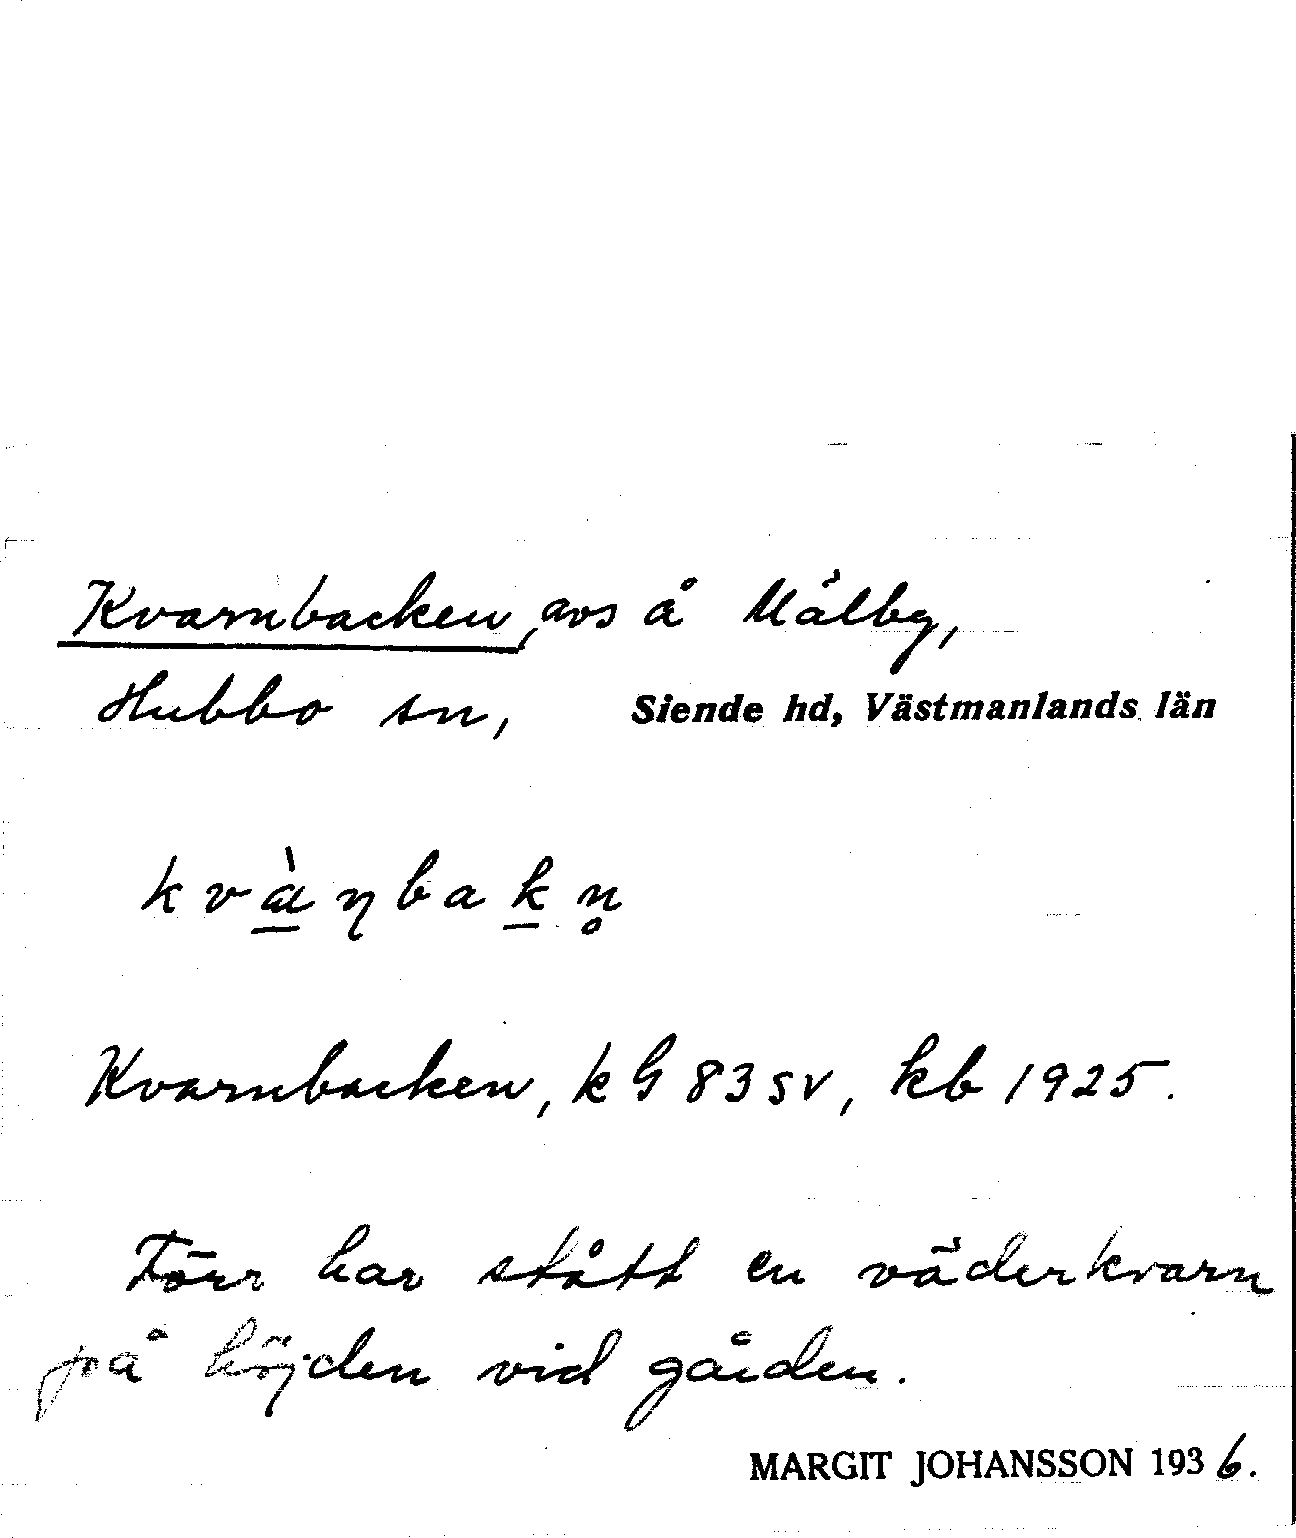 Kvarnbacken, avs å Målby,
Hubbo sn, Siende hd, Västmanlands län
kvàꞃbakn̥
Kvarnbacken, k G 83 SV, kb 1925.
Förr har stått en väderkvarn
på höjden vid gården.
MARGIT JOHANSSON 1936.